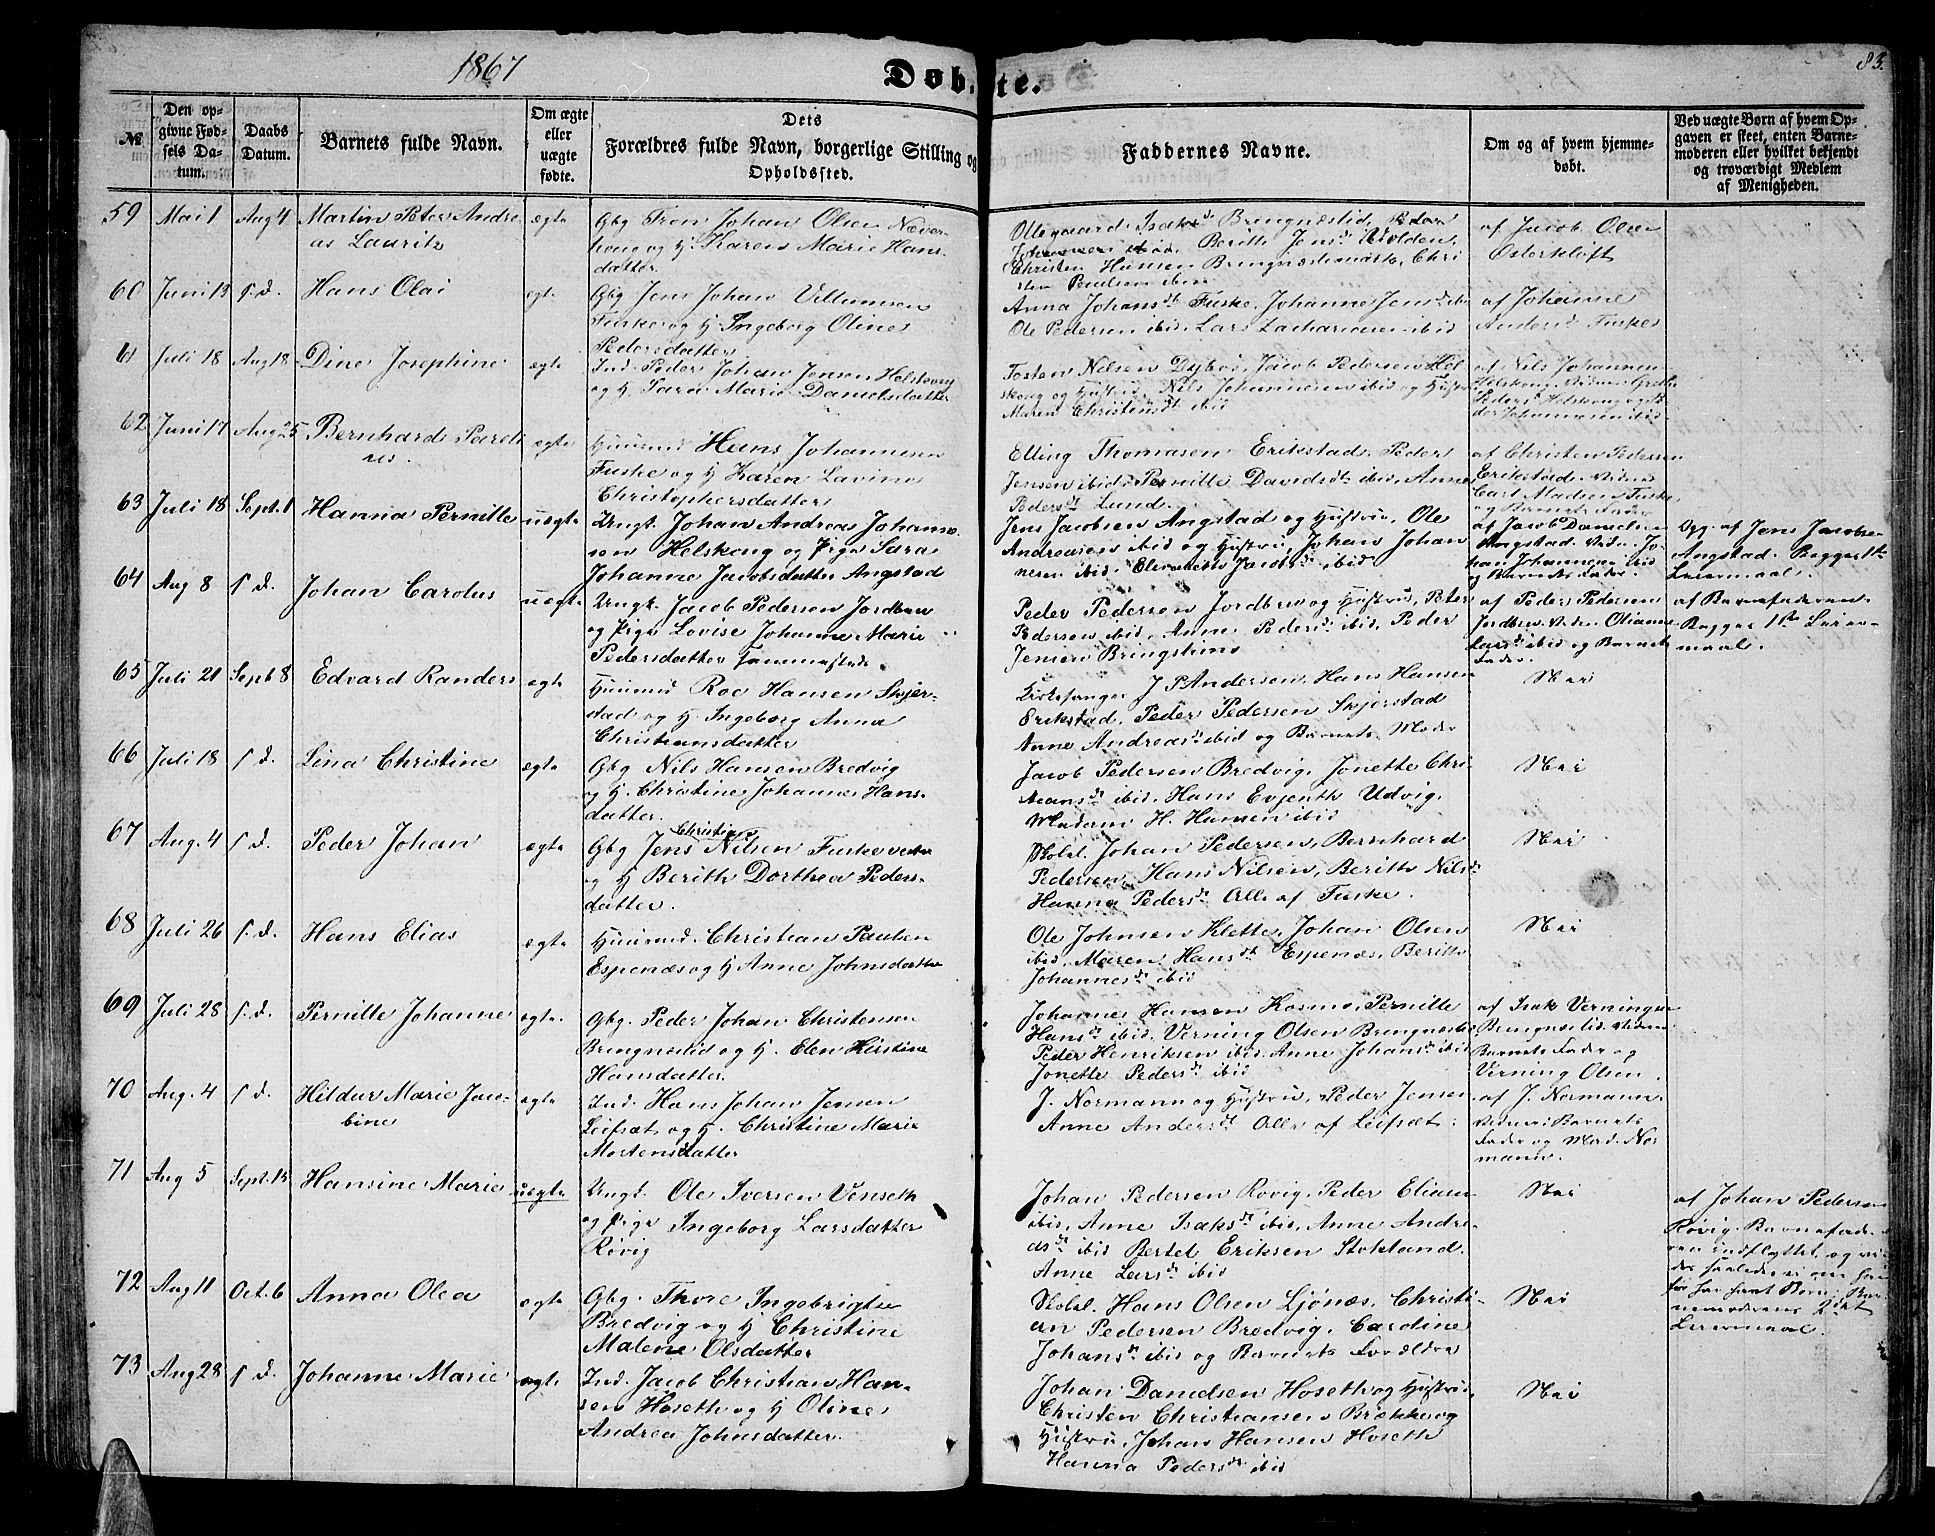 1867
Døbte.
83.
№
Den op-
givne Fød-
sels Da-
tum.
Daabs
Datum.
Barnets fulde Navn.
Om ægte
eller
uægte
fødte.
Dets
Forældres fulde Navn, borgerlige Stilling og
Opholdssted.
Faddernes Navne.
Om og af hvem hjemme-
døbt.
Ved uægte Børn af hvem Op-
gaven er skeet, enten Barne-
moderen eller hvilket bekjendt
og troværdigt Medlem
af Menigheden.
59 Mai 1 Aug 4 Martin Peter Andre
as Lauritz
ægte
Gbg Tron Johan Olsen Næver
houg og H. Karen Marie Hans
datter
Ollegaard Isaksd Bringnæslid, Peder
Johannesen ibid, Berith Jensd Volden,
Christen Hansen Bringnæsmark, Chri
sten Paulsen ibid
af Jacob Olsen
Osterkløft
60 Juni 13 s.d. Hans Olai
ægte
Gbg Jens Johan Villumsen
Fuske og H Ingeborg Oline
Pedersdatter
Anna Johansdt Fuske, Johanne Jensdt ibid
Ole Pedersen ibid. Lars Zachariasen ibid
af Johanne
Andersd Fuske
61 Juli 18 Aug 18 Dina Josephine
ægte
Ind. Peder Johan Jensen Helskong
og H Sara Marie Danielsdatter
Tosten Nilsen Dybvi, Jacob Pedersen Hel
skong og Hustru, Nils Johannesen ibid og Hustru
Maren Christensdt ibid
af Nils Johannesen
Helskong. Vidne Grethe
Pedersd Helskong og Pe
der Johannesen ibid
62 Juni 17 Aug 25 Bernhard Pareli
us.
ægte
Huusmd Hans Johannesen
Fuske og H Karen Lavina
Christophersdatter
Elling Thomasen Erikstad, Peder
Jensen ibid, Pernille Davidsdt ibid, Anne
Pedersdt Lund.
af Christen Pedersen
Erikstad. Vidne
Carl Madsen Fuske
og Barnets Fader
63 Juli 18 Sept. 1 Hanna Pernille
uægte
Ungk. Johan Andreas Johanne
sen Helskong og Pige Sara
Johanne Jacobsdatter Angstad
Jens Jacobsen Angstad og Hustru, Ole
Andreasen ibid og Hustru, Johan Johan
nesen ibid, Jacobsdt ibid
af Jacob Danielsen
Angstad. Vidne Jo-
han Johannesen ibid
og Barnets Fader.
Opg. af Jens Jacobsen
Angstad. Begges 1ste
Leiermaal.
64 Aug 8 s.d. Johan Carolus
uægte
Ungk. Jacob Pedersen Jordbru
og Pige Lovise Johanne Marie
Pedersdatter
Peder Pedersen Jordbru og Hustru, Peter
Pedersen ibid, Anne Pedersdt ibid, Peder
Jensen Bringslims
af Peder Pedersen
Jordbru. Vidne Oliane
Larsd ibid og Barnets
Fader.
af Barnefaderen.
Begges 1ste Leier-
maal.
65 Juli 21 Sept 8 Edvard Randers
ægte
Huusmd Roe Hansen Skjer-
stad og H Ingeborg Anna
Christiansdatter
Kirkesanger J. P Andersen, Hans Hansen
Erikstad, Peder Pedersen Skjerstad
Anne Andreasdt ibid og Barnets Moder
Nei
66 Juli 18 s.d. Lina Christine
ægte
Gbg Nils Hansen Bredvig
og H. Christine Johanna Hans-
datter.
Jacob Pedersen Bredvig, Jonette Chri
stiansdt ibid, Hans Evjenth Udvig,
Madam H. Hansen ibid
Nei
67 Aug. 4 s.d. Peder Johan
ægte
Gbg Jens Christian Nilsen Fuske
og H Berith Dorthea Peders-
datter.
Skolel. Johan Pedersen, Bernhard
Pedersen, Hans Nilsen, Berith Nilsd
Hanna Pedersdt Alle af Fuske.
Nei
68 Juli 26 s.d. Hans Elias
ægte
Huusmd. Christian Paulsen
Espenæs og H Anne Johnsdatter
Ole Johnsen Klette, Johan Olsen
ibid, Maren Hansdt Espenæs, Berith
Johannesdt ibid
Nei
69 Juli 28 s.d. Pernille Johanne
ægte.
Gbg. Peder Johan Christensen
Bringnæslid og H. Elen Kirstine
Hansdatter.
Johannes Hansen Kosmo, Pernille
Hansdt ibid, Verning Olsen Bringnæslid
Peder Henriksen ibid, Anne Johansdt ibid
Jonette Pedersdt ibid
af Isak Verningsen
Bringnæslid. Vidner
Barnets Fader og
Verning Olsen.
70 Aug. 4 s.d. Hildur Marie Jaco-
bine
ægte
Ind. Hans Johan Jensen
Leifsæt og H. Christine Marie
Mortensdatter
J. Normann og Hustru, Peder Jensen.
Anne Andersdt Alle af Leifsæt.
af J. Normann.
Vidner Barnets
Fader og Mad. Nor
mann.
71 Aug 5 Sept. 15 Hansine Marie
uægte
Ungk. Ole Iversen Venseth
og Pige Ingeborg Larsdatter
Røvig
Johan Pedersen Røvig, Peder Eliasen
ibid, Anne Isaksdt ibid, Anne Andre
asdt ibid Bertel Eriksen Stokland.
Anne Larsdt ibid
Nei
af Johan Pedersen
Røvig. Barnefade-
ren indflyttet og vi-
des saaledes ei om han
før har havt Børn. Bar
nemoderens 2det
Leiermaal.
72 Aug 11 Oct. 6 Anna Olea
ægte
Gbg. Thore Ingebrigtsen
Bredvig og H Christine
Malene Olsdatter
Skolel. Hans Olsen Ljønæs, Christi-
an Pedersen Bredvig, Cardine
Johansdt ibid og Barnets Forældre
Nei
73 Aug 28 s.d. Johanne Marie
ægte
Ind. Jacob Christian Han-
sen Hoseth og H Oline
Andrea Johnsdatter.
Johan Danielsen Hoseth og Hustru
Christen Christiansen Brække og
Hustru, Johan Hansen Hoseth
Hanna Pedersdt ibid
Nei